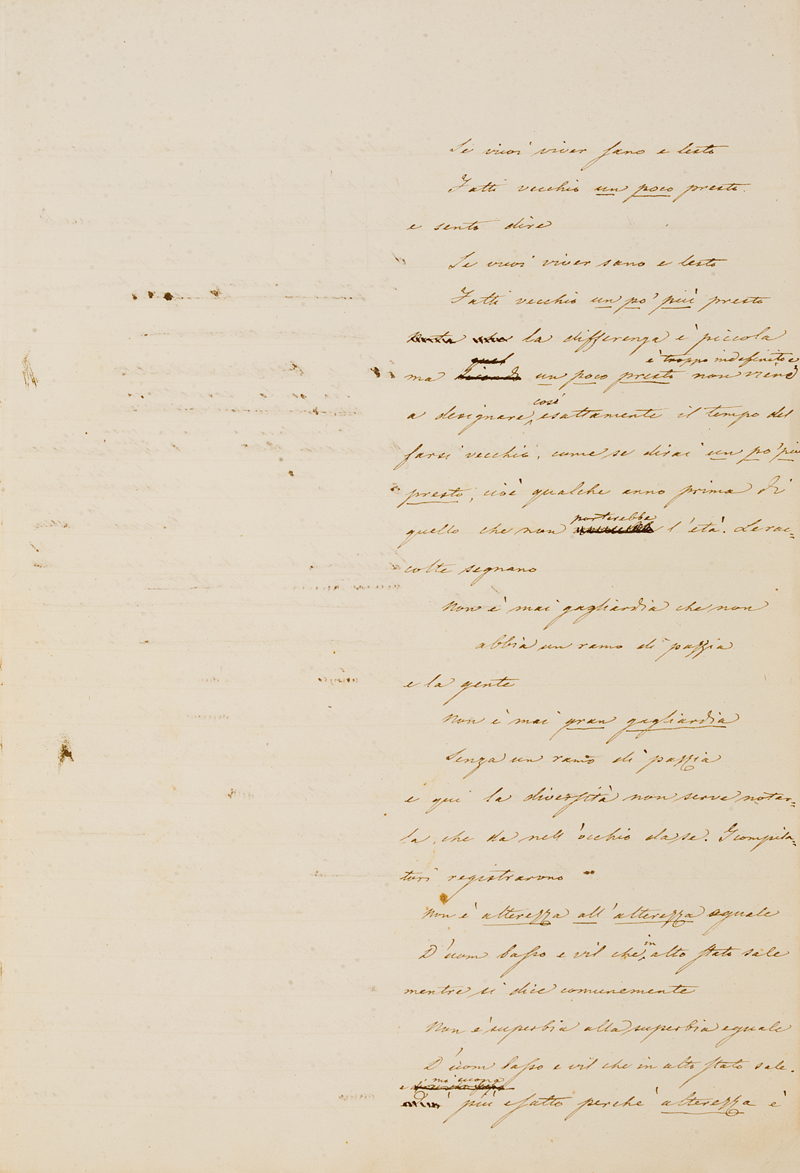 Se vuoi viver sano e lesto
Fatti vecchio un poco presto.
e sento dire
Se vuoi viver sano e lesto
Fatti vecchio un po' più presto
la differenza è piccola
è troppo indefinito e
ma un poco presto non viene
così
a designare, esattamente il tempo del
farsi vecchio, come se dirai un po' più
presto, cioè qualche anno prima di
porterebbe
quello che non l'età. Le rac=
colte segnano
Non è mai gagliardia che non
abbia un ramo di pazzia
e la gente
Non è mai gran gagliardia
Senza un ramo di pazzia
e qui la diversità non serve notar=
la, che da nell'occhio da se. I compila=
tori registrarono
Non è alterezza all'alterezza eguale
in
D'uom basso e vil che alto stato sale
mentre si dice comunemente
Non è superbia alla superbia eguale
D'uom basso e vil che in alto stato sale.
e
più esatto perchè alterezza è